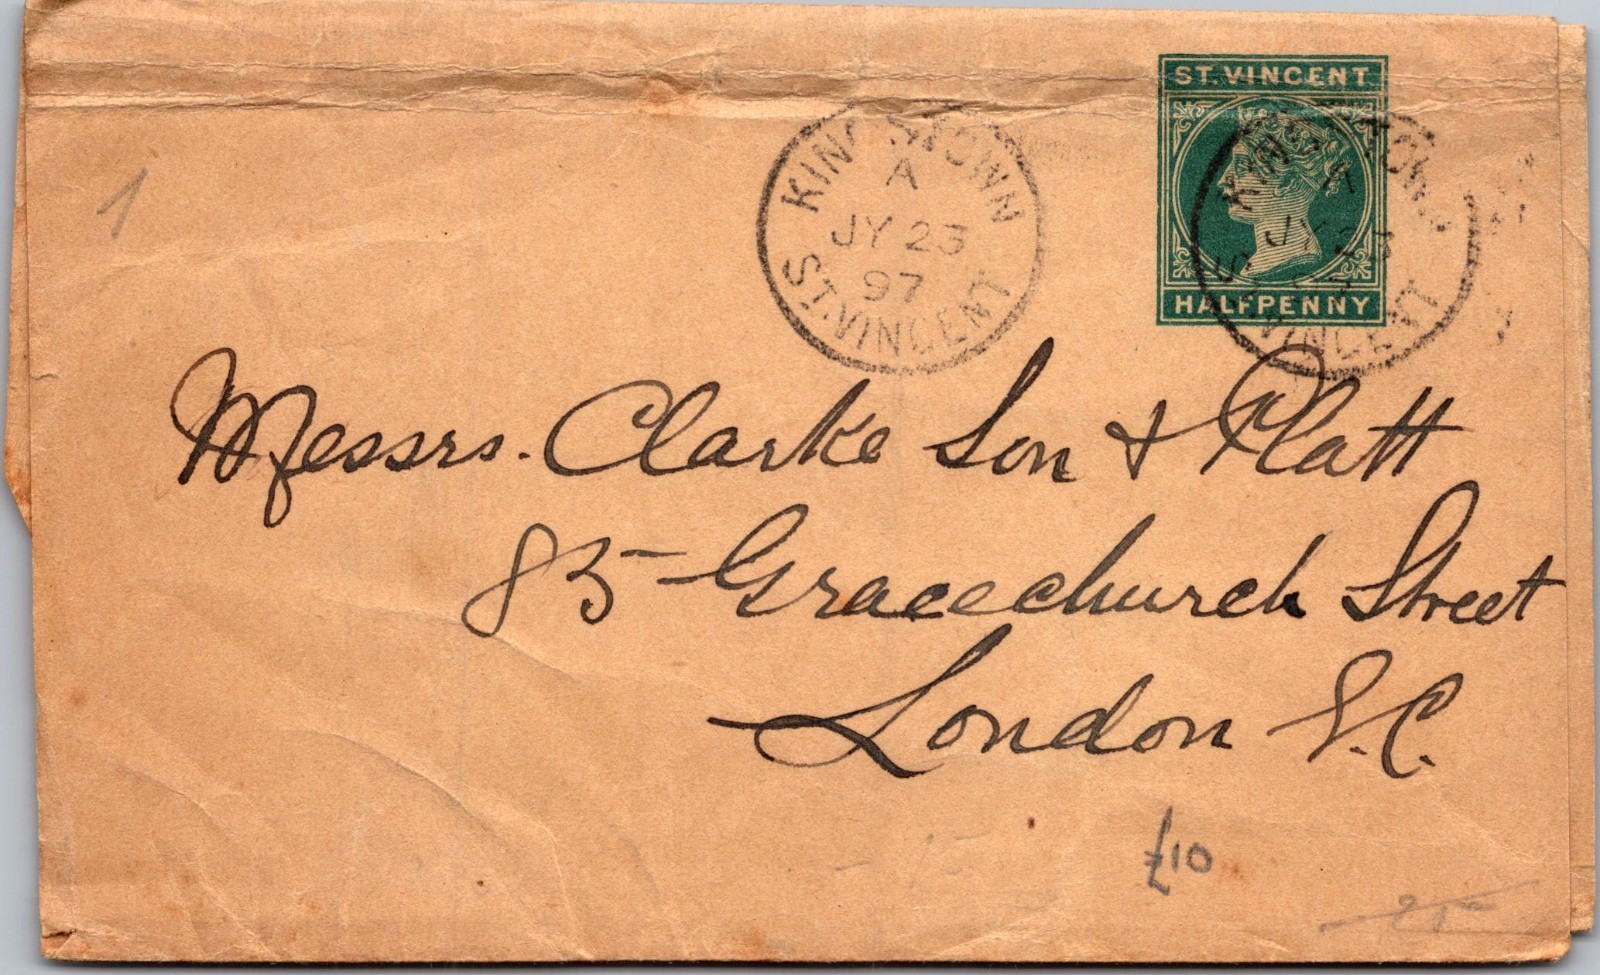 ST. VINCENT
HALFPENNY
KINGSTOWN
A
JY 23
97
ST. VINCENT
KINGSTOWN
A
JY 23
ST. VINCENT
1
Messrs. Clarke Son & Platt
85 Gracechurch Street
London E.C.
£10